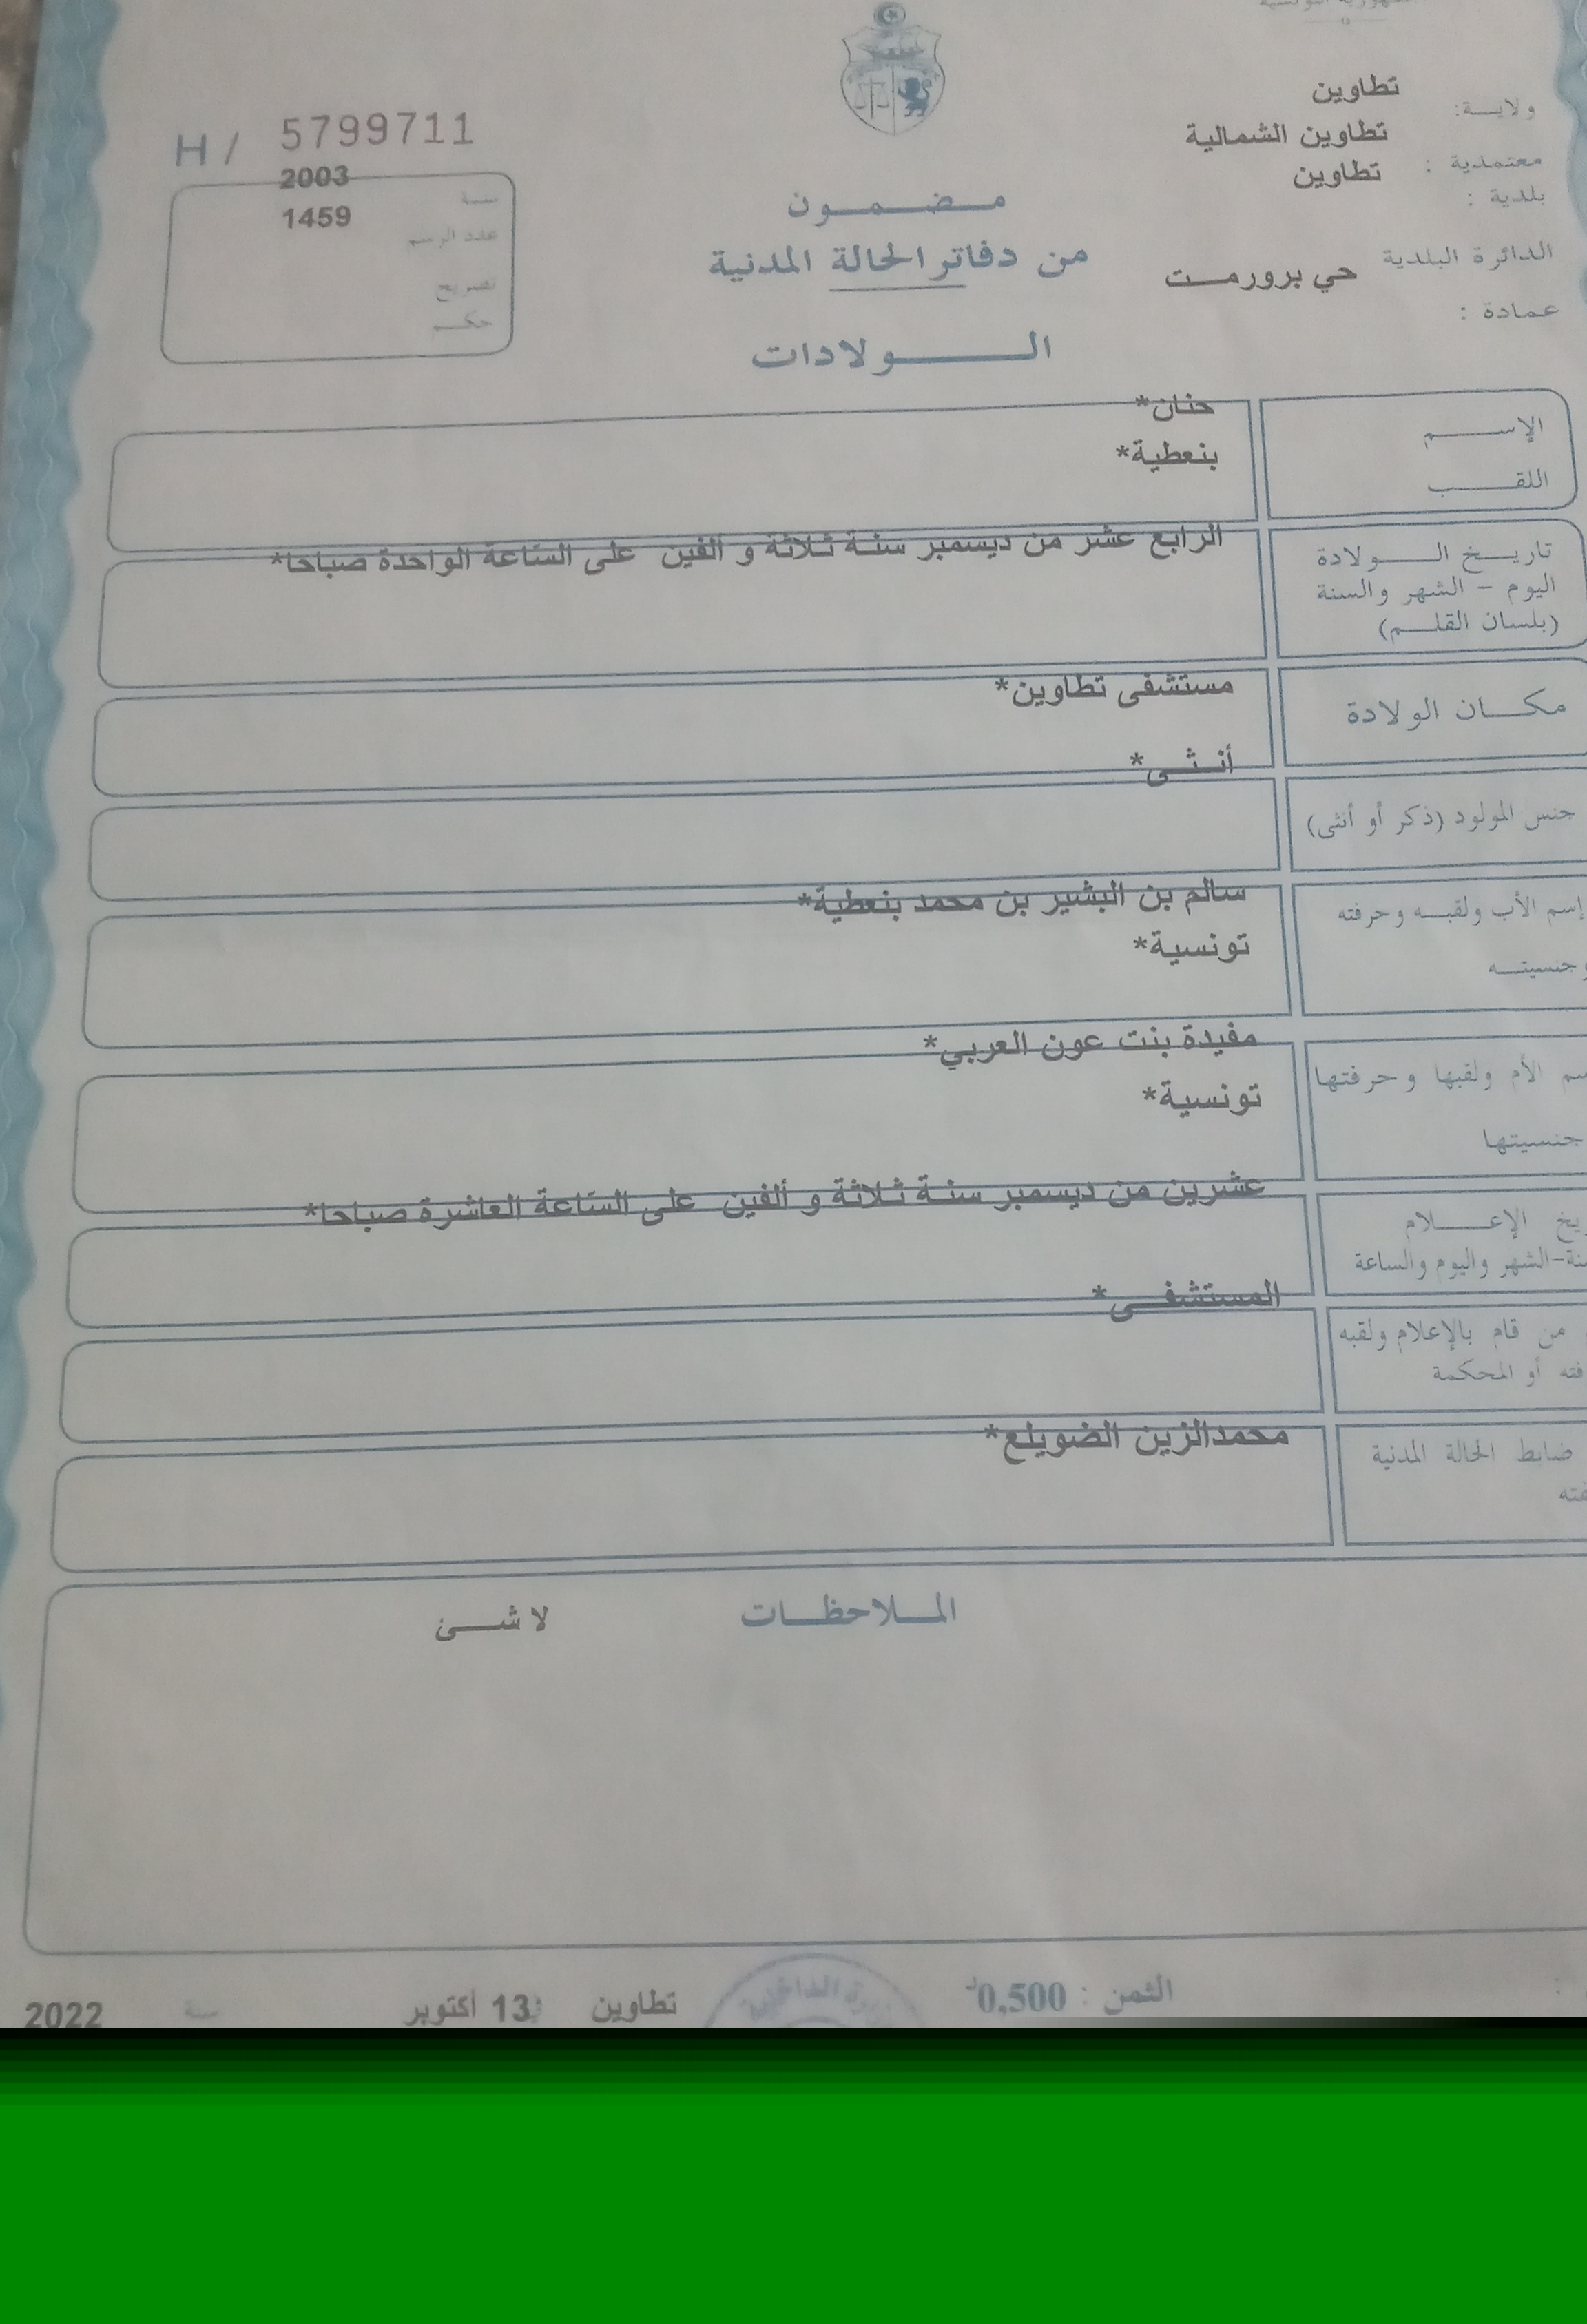 تطاوين
ولايـــة:
تطاوين الشمالية
معتمدية :
تطاوين
بلدية :
الدائرة البلدية حي برورمست
عمادة :
H / 5799711
2003
سنة
1459
عدد الرسم
تصريح
حكم
مضمون
من دفاتر الحالة المدنية
الولادات
الإسم
حنان*
اللقب
بنعطية*
تاريخ الولادة
اليوم - الشهر والسنة
(بلسان القلم)
الرابع عشر من ديسمبر سنة ثلاثة و ألفين على الساعة الواحدة صباحا*
مكان الولادة
مستشفى تطاوين*
جنس المولود (ذكر أو أنثى)
أنثى*
إسم الأب ولقبه وحرفته
سالم بن البشير بن محمد بنعطية*
وجنسيته
تونسية*
الأم ولقبها وحرفتها
مفيدة بنت عون العربي*
جنسيتها
تونسية*
الإعلام
الشهر واليوم والساعة
عشرين من ديسمبر سنة ثلاثة و ألفين على الساعة العاشرة صباحا*
من قام بالإعلام ولقبه
أو المحكمة
المستشفى*
ضابط الحالة المدنية
محمدالزين الضويلع*
الملاحظات
لا شئ
الثمن : 0,500د
تطاوين 13 أكتوبر سنة 2022